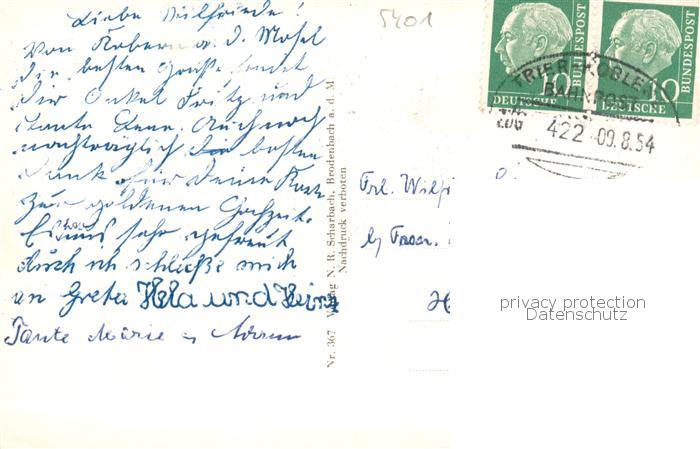 Liebe Wilfriede!
Von Kobern a. d. Mosel
die besten Grüße sendet
Dir Onkel Fritz und
Tante Lene. Auch noch
nachträglich besten
Dank für Deine Karte
zur goldenen Hochzeit.
Es hat uns sehr gefreut
Auch ich schließe mich
an Greta Hela und Heinz
Tante Marie u.
5401
Nr. 367 Verlag N. R. Scharbach, Brodenbach a. d. M
Nachdruck verboten
10
DEUTSCHE BUNDESPOST
10
DEUTSCHE BUNDESPOST
TRIER-KOBLEN
BAHNPOST
ZUG
422 -09.8.54
Frl. Wilfri
b/
privacy protection
Datenschutz